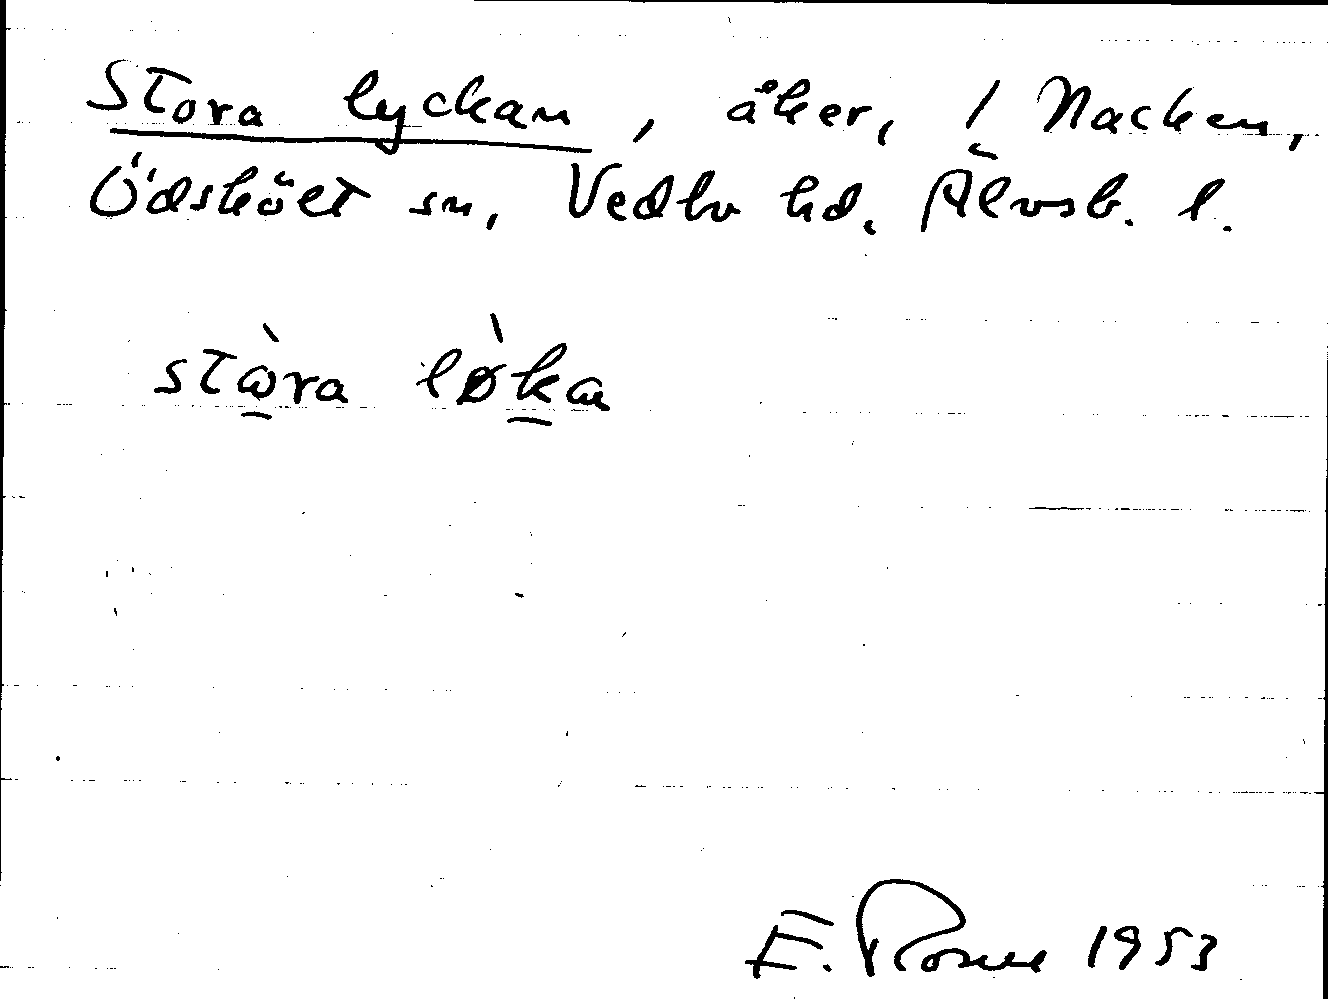 Stora lyckan, åker, 1 Nacken,
Ödskölt sn, Vedbo hd. Älvsb. l.
stὼra lø̀kan
E. Rosell 1953